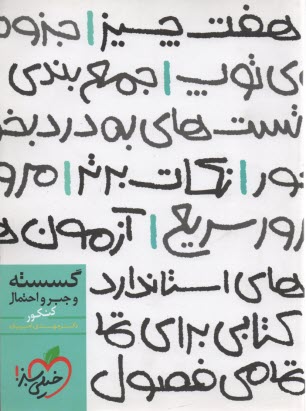 هفت چیز | جزوه
ی توپ | جمع بندی
تست های به درد بخو
ور | نکات برتر | مرو
ور سریع | آزمون ه
های استاندارد
کتابی برای تما
تمامی فصول
گسسته
و جبر و احتمال
کنکور
خیلی سبز